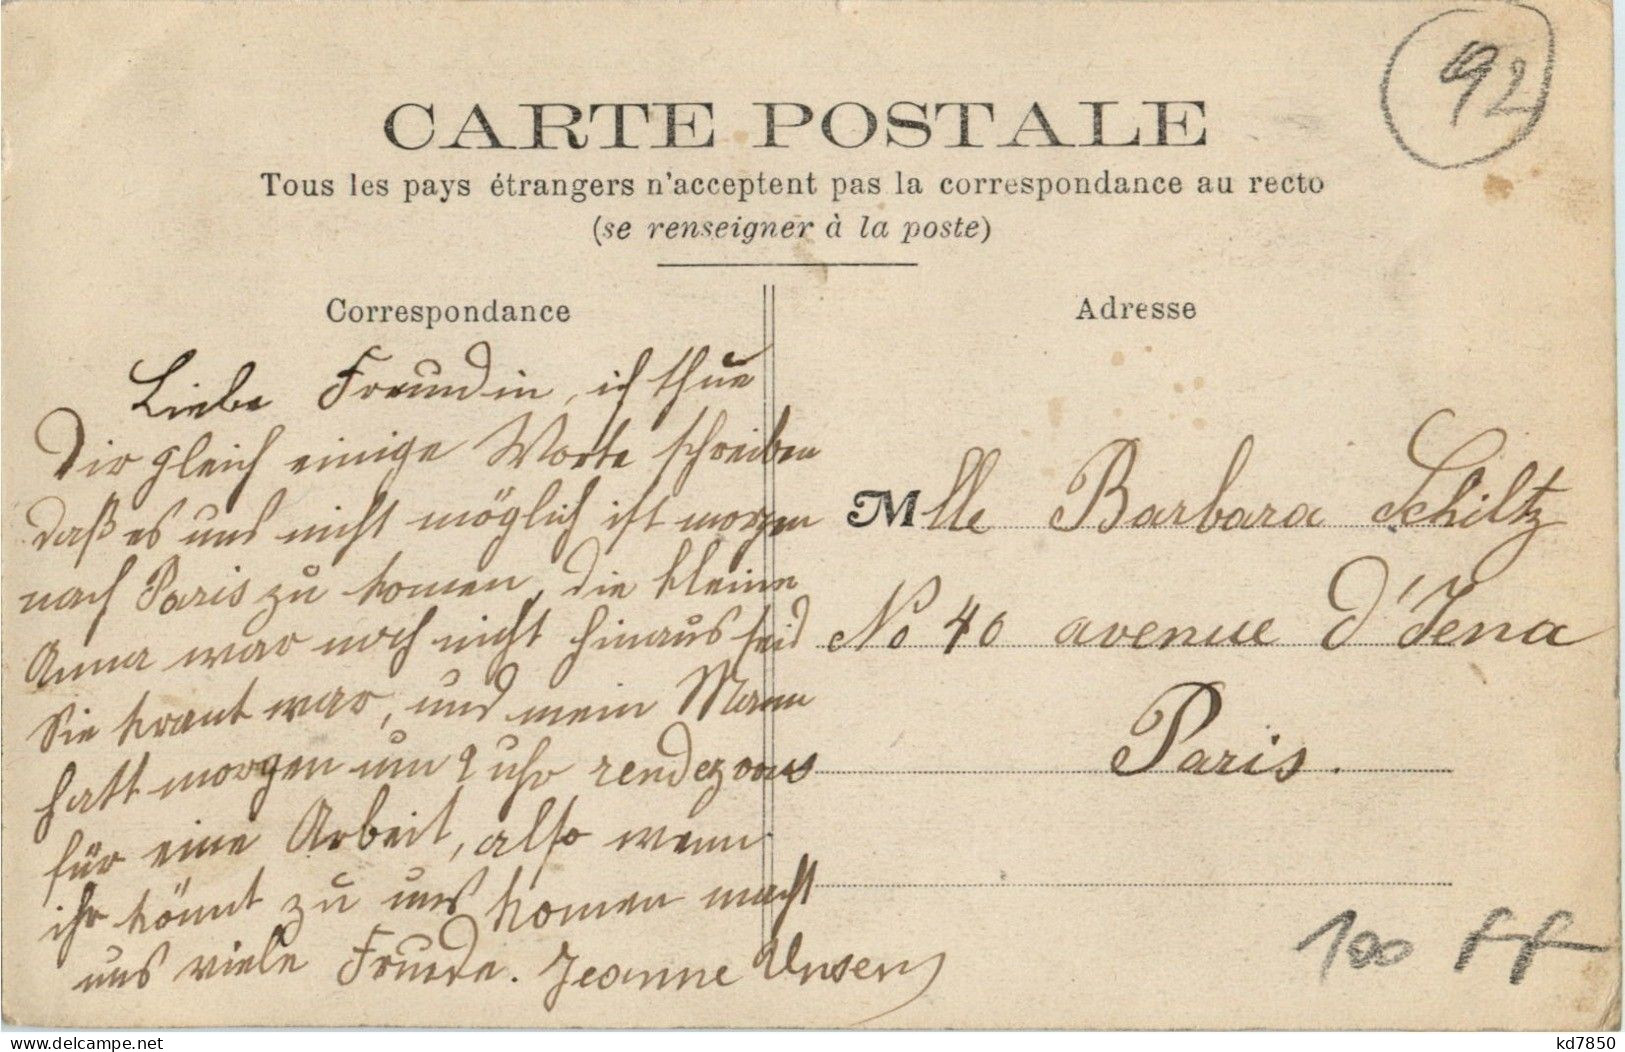 92
CARTE POSTALE
Tous les pays étrangers n'acceptent pas la correspondance au recto
(se renseigner à la poste)
Correspondance
Adresse
Liebe Freundin, ich thue
Dir gleich einige Worte schreiben
daß es uns nicht möglich ist morgen
nach Paris zu komen, die kleine
Anna war noch nicht hinaus seid
Sie krant war, und mein Mann
hatt morgen um 2 uhr rendezvous
für eine Arbeit, also wenn
ihr könnt zu uns komen macht
uns viele Freude. Jeanne
Mlle Barbara Schiltz
No 40 avenue d'Jena
Paris.
100 FF
delcampe.net
kd7850